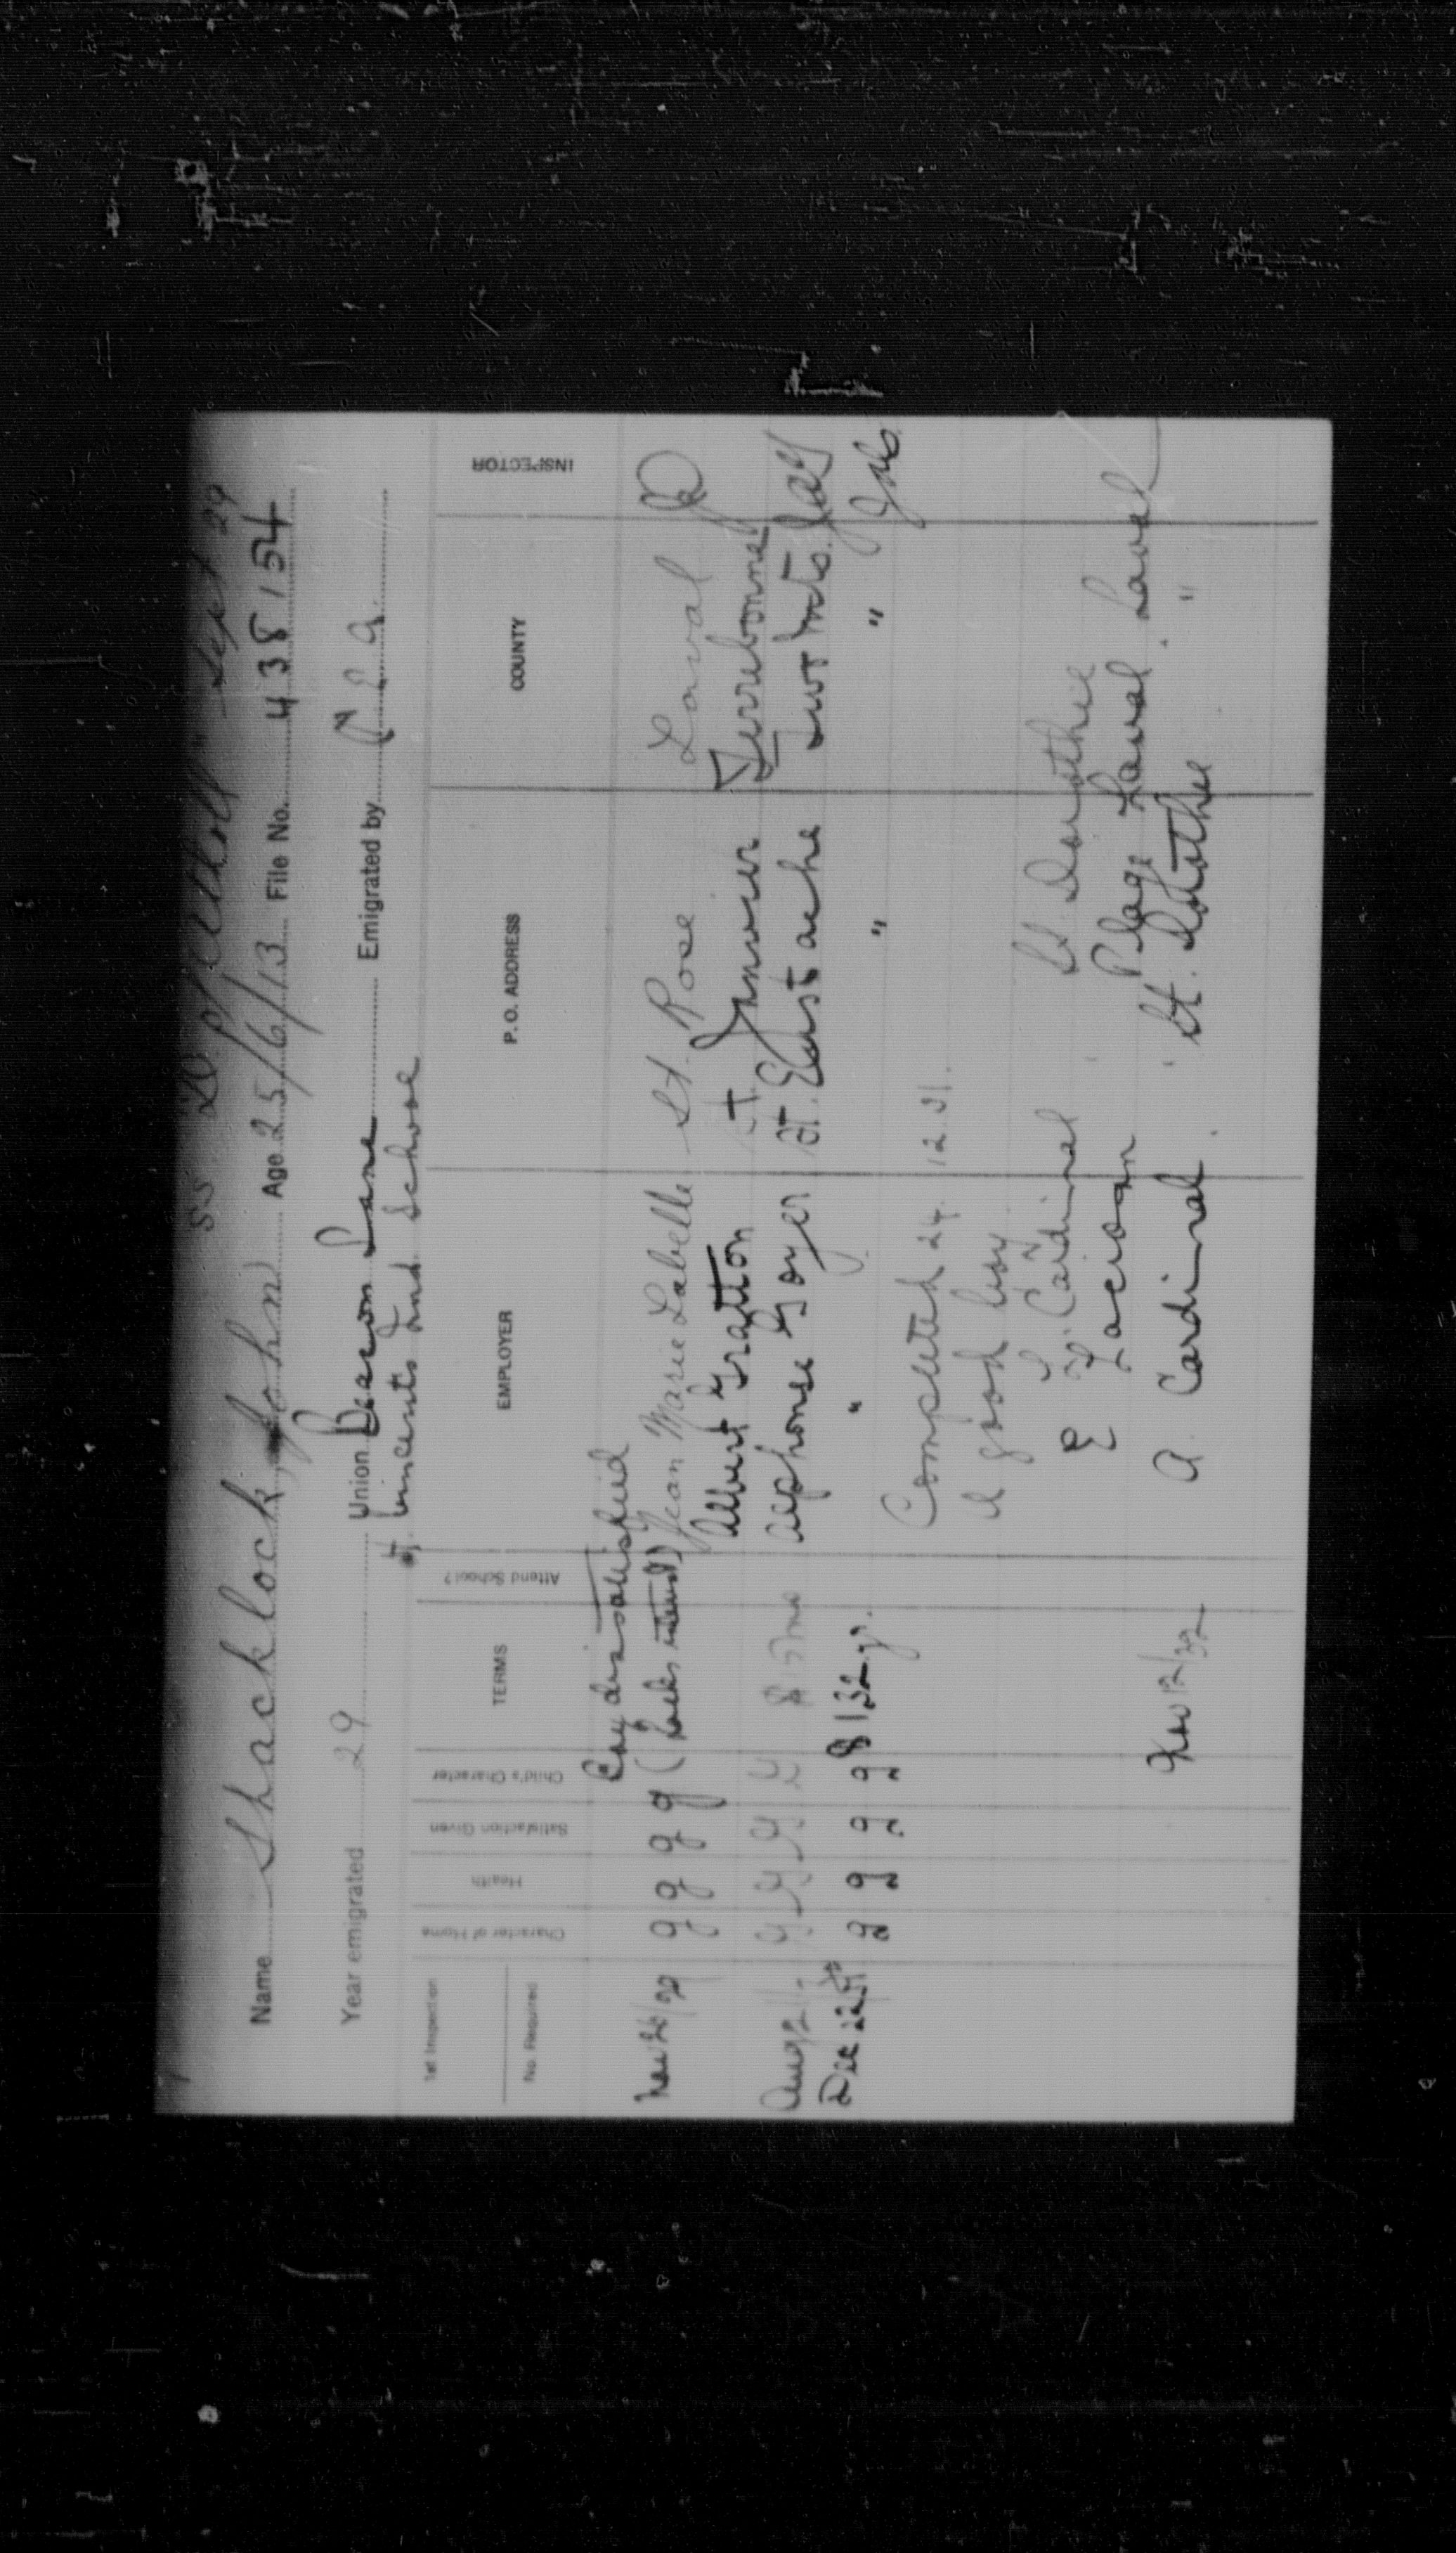 SS. "D. of Atholl" Sept 29
Name Shacklock, John Age 25/6/13 File No. 438154
Year emigrated 29 Union Deacon Lane Emigrated by
St Vincents Ind School
1st Inspection
No. Required
Character of Home
Health
Satisfaction Given
Child's Character
TERMS
Attend School?
EMPLOYER
P. O. ADDRESS
COUNTY
INSPECTOR
Boy dissatisfied
Nov 26/29 g g g g (Lacks interest) Jean Marie Labelle St. Rose Laval
Albert Gratton St Janvier Terrebonne
Aug 21 g g g g Alphonse Goyer St. Eustache Two Mts.
Dec 22 g g g g $132 yr. " " "
Completed 24.12.31.
A good boy
Cardinal St. Dorothee
E Lacroix Plage Laval. Laval
Nov 12/32 A. Cardinal. St. Dorothee "